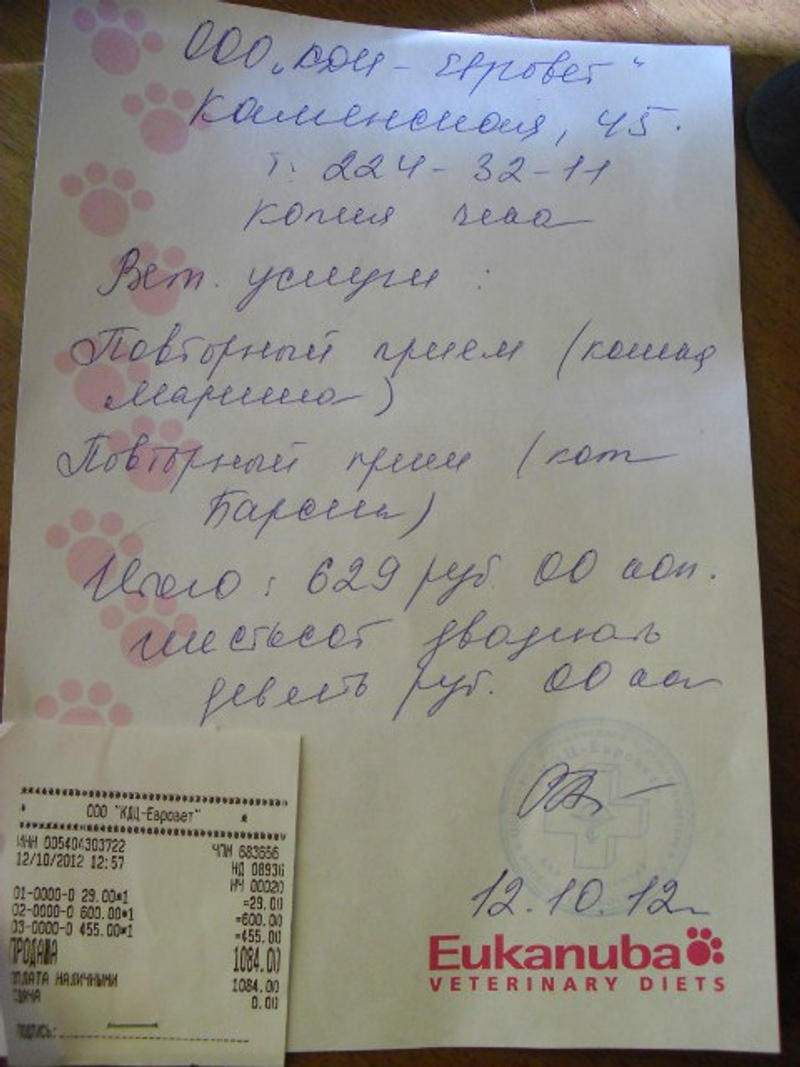 ООО „КДЦ - Евровет"
Каменская, 45.
т. 224-32-11
копия чека
Вет. услуги :
Повторный прием (кошка
)
Повторный прием (кот
Барсик)
Итого : 629 руб. 00 коп.
шестьсот двадцать
девять руб. 00 коп
12.10.12г
Eukanuba
VETERINARY DIETS
ООО "КДЦ-Евровет"
ИНН 005404303722 ЧПМ 683656
12/10/2012 12:57 НД 08930
НЧ 00020
01-0000-0 29.00*1 =29.00
02-0000-0 600.00*1 =600.00
03-0000-0 455.00*1 =455.00
ПРОДАЖА 1084.00
ОПЛАТА НАЛИЧНЫМИ 1084.00
СДАЧА 0.00
подпись: